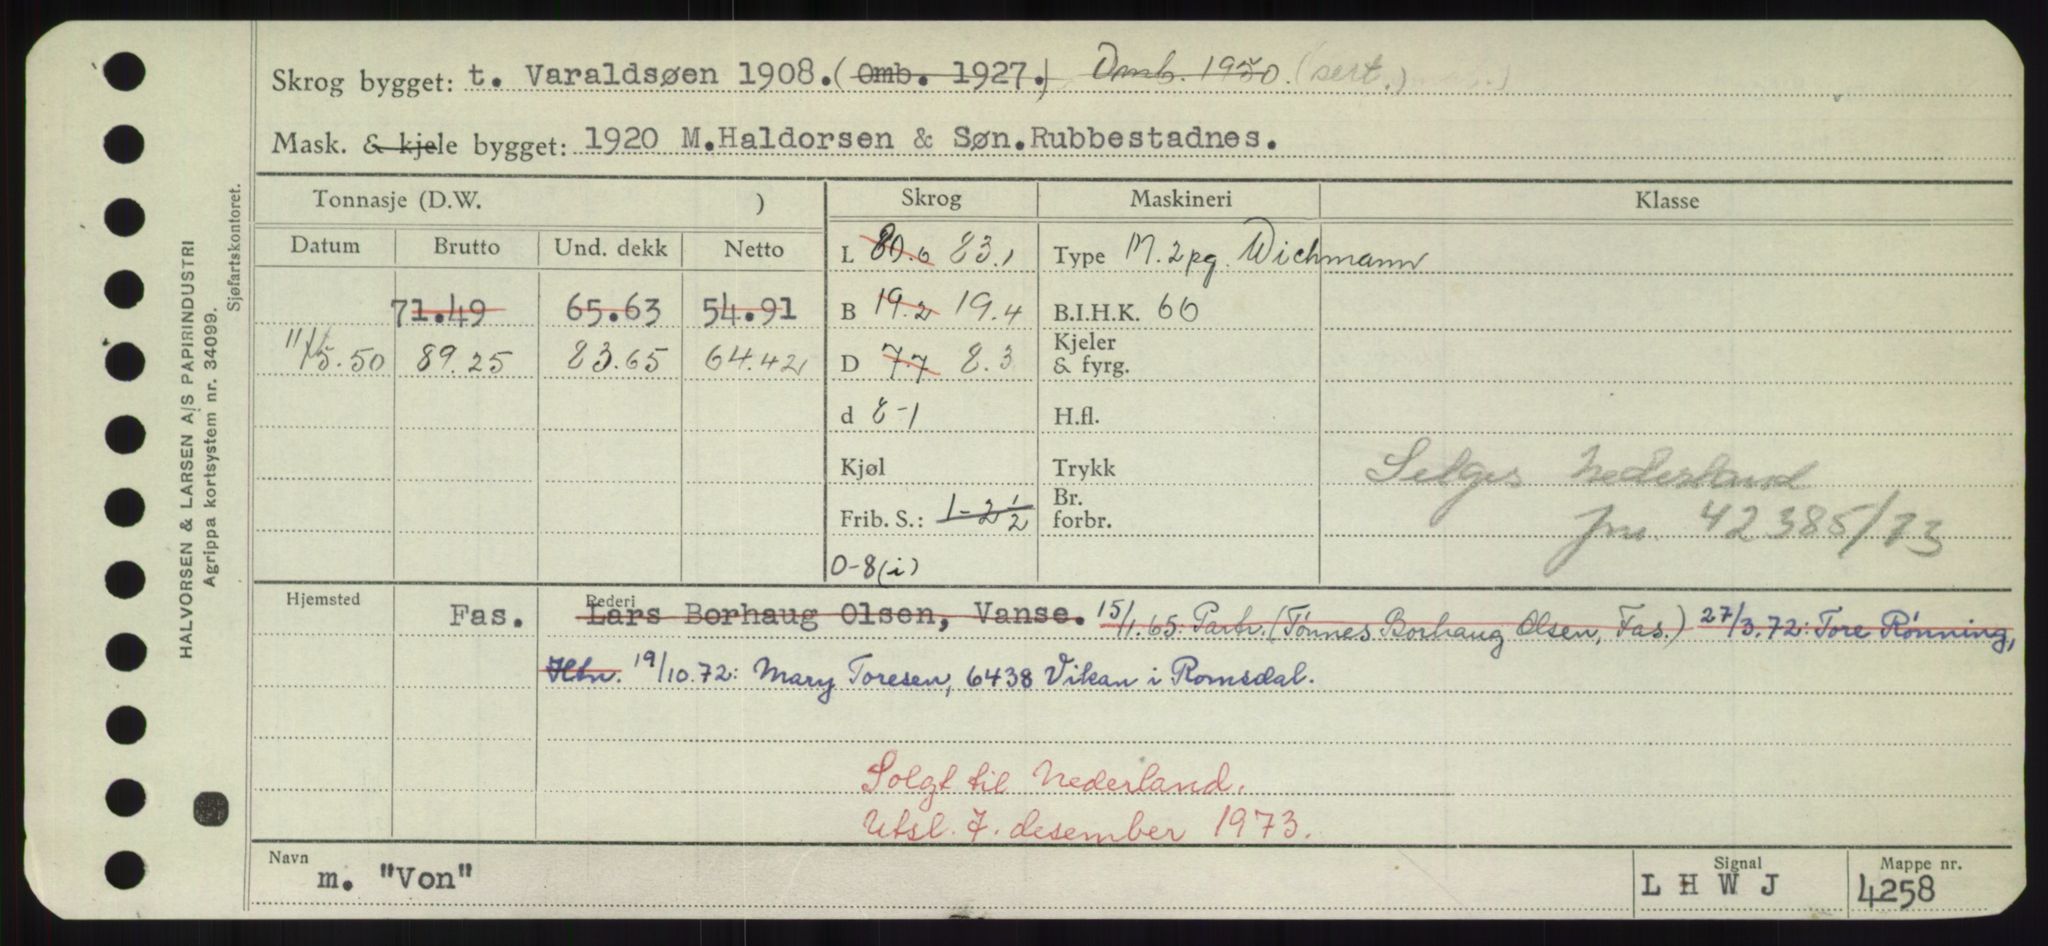 Skrog bygget: t. Varaldsøen 1908. (Omb. 1927.) Omb. 1950 (sert.)
Mask. & kjele bygget: 1920 M.Haldorsen & Søn.Rubbestadnes.
Tonnasje (D.W. ) Skrog Maskineri Klasse
Datum Brutto Und. dekk Netto L 80.6 83.1 Type M. 2pg. Wichmann
71.49 65.63 54.91 B 19.2 19.4 B.I.H.K. 60
11/5.50 89.25 83.65 64.42 D 7.7 8.3 Kjeler & fyrg.
d 8-1 H.fl.
Kjøl Trykk Selges Nederland
Frib. S.: 1-2½ Br. forbr. jnr. 42385/73
0-8(i)
Hjemsted Fas. Rederi Lars Borhaug Olsen, Vanse. 15/1.65: Partr. (Tønnes Borhaug Olsen, Fas.) 27/3.72: Tore Rønning,
Htn. 19/10.72: Mary Toresen, 6438 Vikan i Romsdal.
Solgt til Nederland.
Utsl. 7. desember 1973.
Navn m. "Von" Signal L H W J Mappe nr. 4258
HALVORSEN & LARSEN A/S PAPIRINDUSTRI
Agrippa kortsystem nr. 34099.
Sjøfartskontoret.